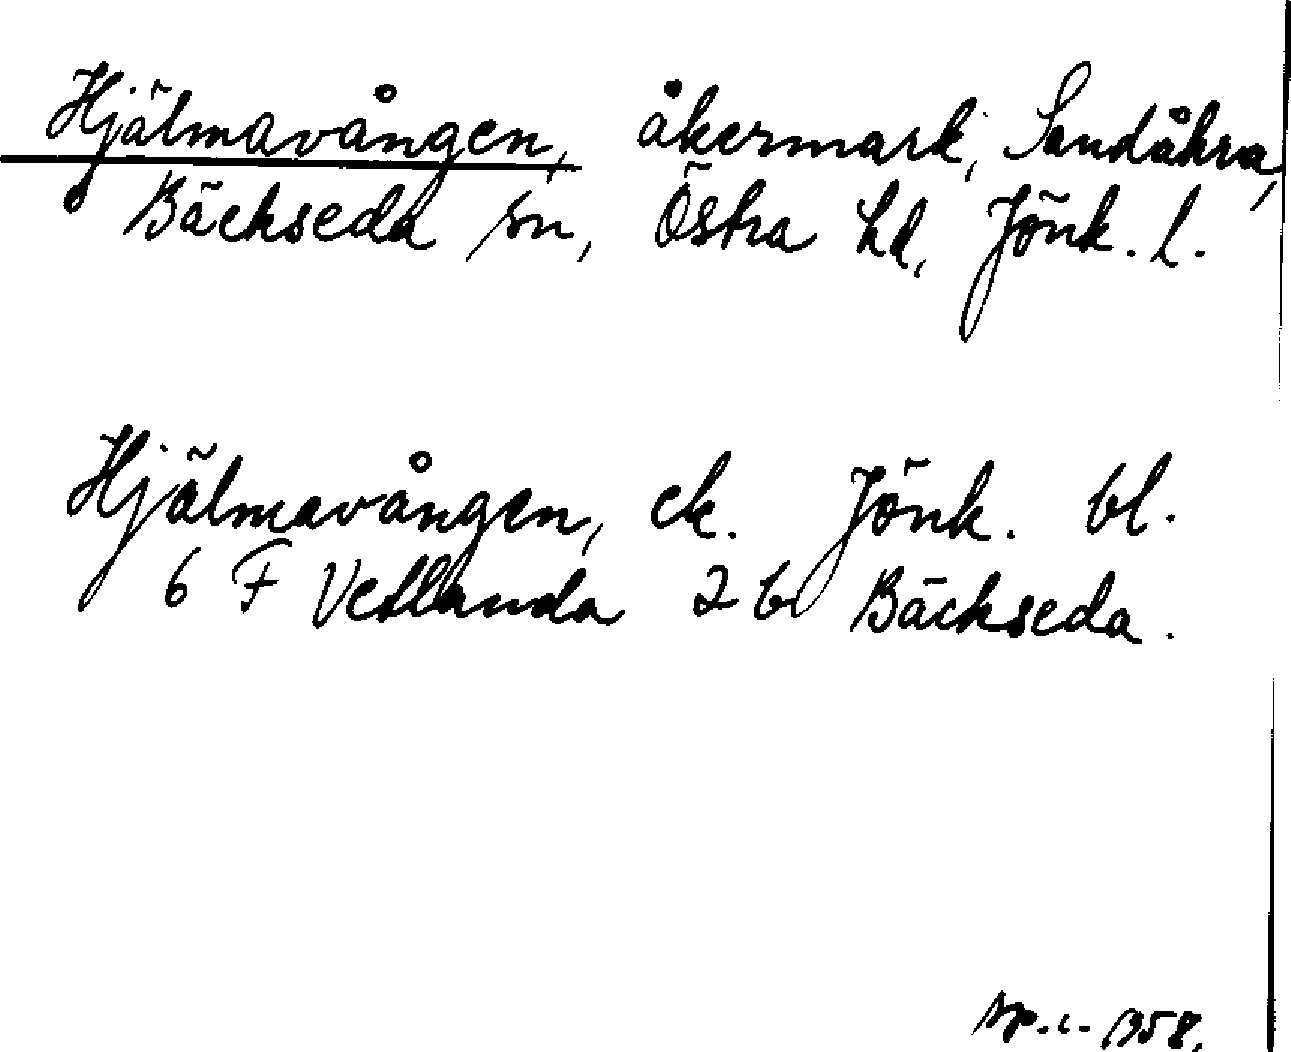 Hjälmavången, åkermark, Sandåkra,
Bäckseda sn, Östra hd, Jönk. l.
Hjälmavången, ek. Jönk. bl.
6 F Vetlanda 2 b Bäckseda.
1958.